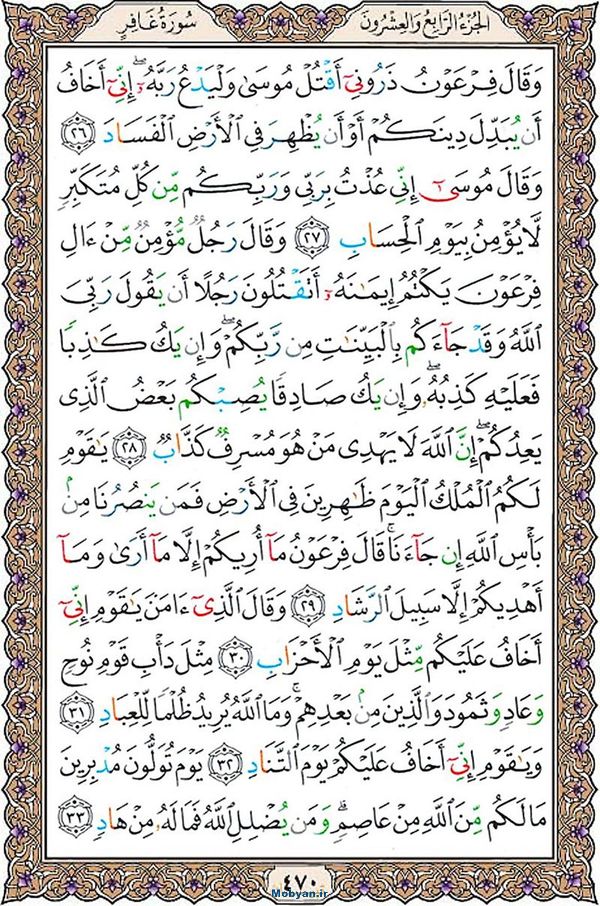 الجُزءُ الرَّابِعُ وَالعِشْرُونَ سُورَةُ غَافِرٍ
وَقَالَ فِرْعَوْنُ ذَرُونِىٓ أَقْتُلْ مُوسَىٰ وَلْيَدْعُ رَبَّهُۥٓ ۖ إِنِّىٓ أَخَافُ
أَن يُبَدِّلَ دِينَكُمْ أَوْ أَن يُظْهِرَ فِى ٱلْأَرْضِ ٱلْفَسَادَ ﴿٢٦﴾
وَقَالَ مُوسَىٰٓ إِنِّى عُذْتُ بِرَبِّى وَرَبِّكُم مِّن كُلِّ مُتَكَبِّرٍ
لَّا يُؤْمِنُ بِيَوْمِ ٱلْحِسَابِ ﴿٢٧﴾ وَقَالَ رَجُلٌ مُّؤْمِنٌ مِّنْ ءَالِ
فِرْعَوْنَ يَكْتُمُ إِيمَـٰنَهُۥٓ أَتَقْتُلُونَ رَجُلًا أَن يَقُولَ رَبِّىَ
ٱللَّهُ وَقَدْ جَآءَكُم بِٱلْبَيِّنَـٰتِ مِن رَّبِّكُمْ ۖ وَإِن يَكُ كَـٰذِبًا
فَعَلَيْهِ كَذِبُهُۥ ۖ وَإِن يَكُ صَادِقًا يُصِبْكُم بَعْضُ ٱلَّذِى
يَعِدُكُمْ ۖ إِنَّ ٱللَّهَ لَا يَهْدِى مَنْ هُوَ مُسْرِفٌ كَذَّابٌ ﴿٢٨﴾ يَـٰقَوْمِ
لَكُمُ ٱلْمُلْكُ ٱلْيَوْمَ ظَـٰهِرِينَ فِى ٱلْأَرْضِ فَمَن يَنصُرُنَا مِنۢ
بَأْسِ ٱللَّهِ إِن جَآءَنَا ۚ قَالَ فِرْعَوْنُ مَآ أُرِيكُمْ إِلَّا مَآ أَرَىٰ وَمَآ
أَهْدِيكُمْ إِلَّا سَبِيلَ ٱلرَّشَادِ ﴿٢٩﴾ وَقَالَ ٱلَّذِىٓ ءَامَنَ يَـٰقَوْمِ إِنِّىٓ
أَخَافُ عَلَيْكُم مِّثْلَ يَوْمِ ٱلْأَحْزَابِ ﴿٣٠﴾ مِثْلَ دَأْبِ قَوْمِ نُوحٍ
وَعَادٍ وَثَمُودَ وَٱلَّذِينَ مِنۢ بَعْدِهِمْ ۚ وَمَا ٱللَّهُ يُرِيدُ ظُلْمًا لِّلْعِبَادِ ﴿٣١﴾
وَيَـٰقَوْمِ إِنِّىٓ أَخَافُ عَلَيْكُمْ يَوْمَ ٱلتَّنَادِ ﴿٣٢﴾ يَوْمَ تُوَلُّونَ مُدْبِرِينَ
مَا لَكُم مِّنَ ٱللَّهِ مِنْ عَاصِمٍ ۗ وَمَن يُضْلِلِ ٱللَّهُ فَمَا لَهُۥ مِنْ هَادٍ ﴿٣٣﴾
٤٧٠
Mobyan.ir